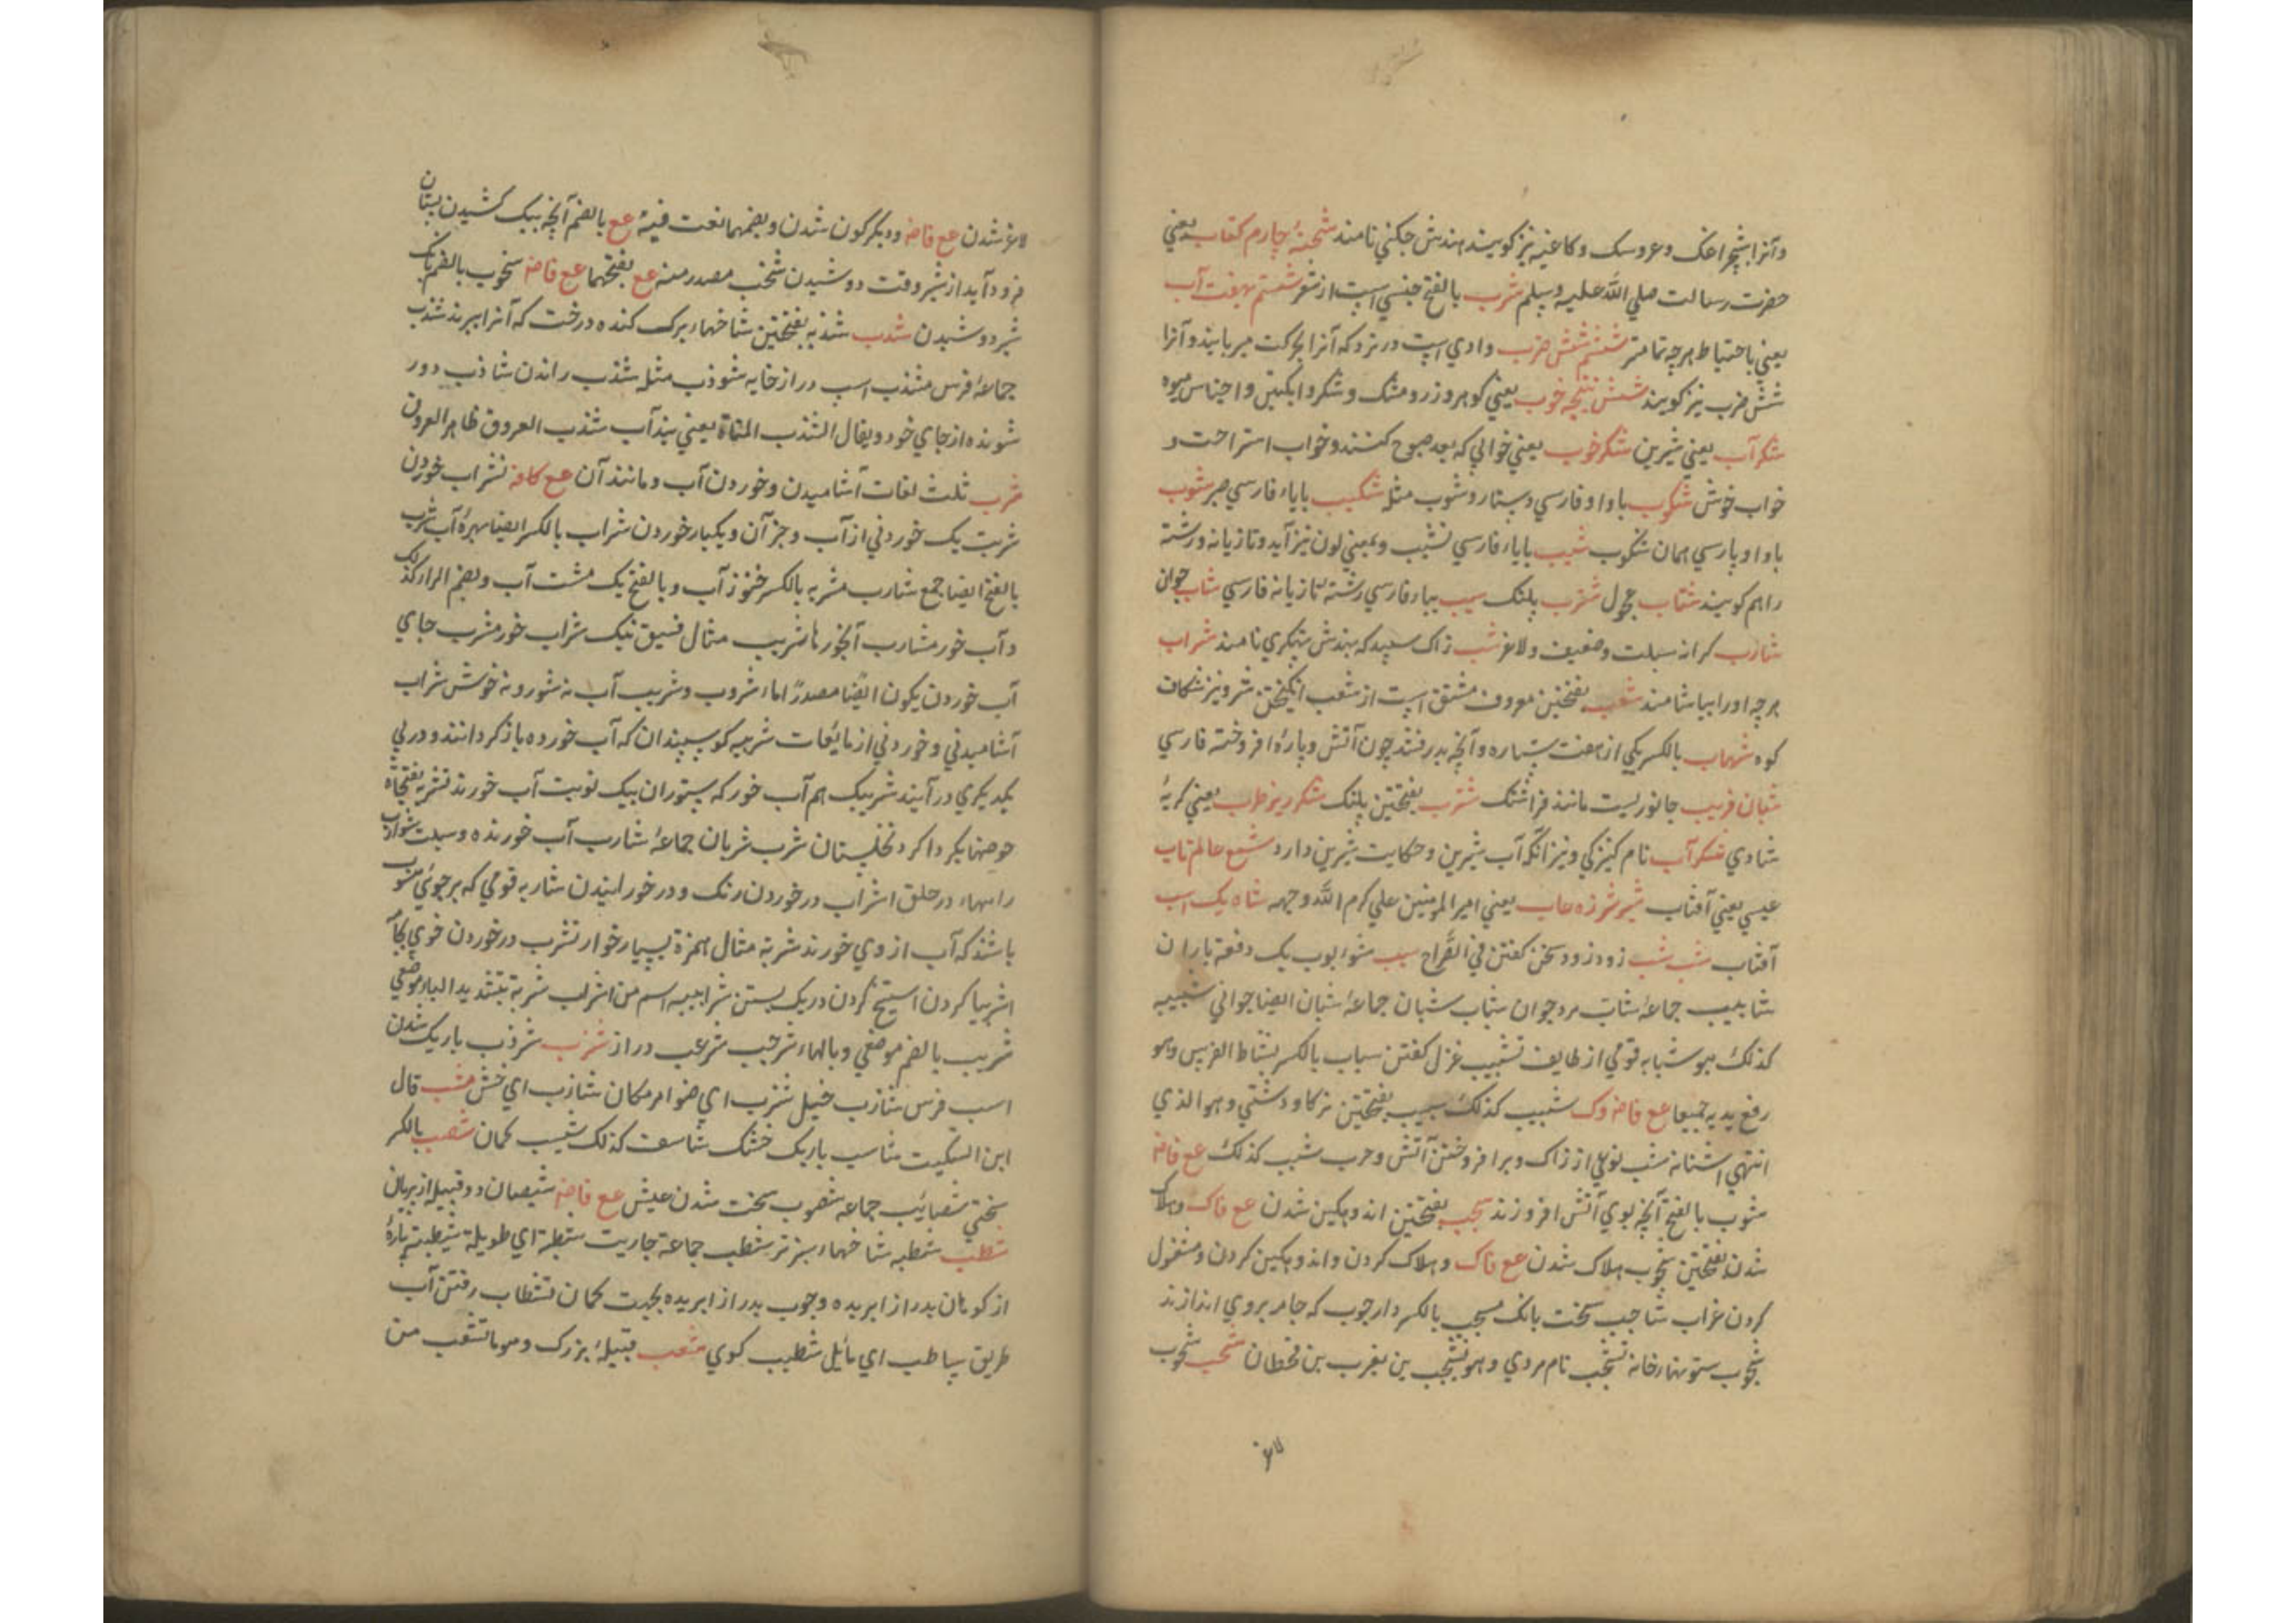 وآنرا شبچراغک وعروسک وکاغنه نیز کویند هندش جکنی نامند شحنهٔ چارم کتاب یعنی
حضرت رسالت صلی الله علیه وسلم شرب بالفتح جنسی است از
یعنی باحتیاط هرچه تمامتر شش ضرب وادی است در نرد که آنرا میربایند وآنرا
شش ضرب نیز کویند شش نتیجه خوب یعنی کوهر وزر ومشک وشکر وانکبین واجناس میوه
شکرآب یعنی شیرین شکرخوب یعنی خوابی که بعد صبوح کنند وخواب استراحت و
خواب خوش شکوب باواو فارسی دستار وشوب مثله شکیب بایاء فارسی صبر شوب
باواو پارسی همان شکوب شیب بایاء فارسی نشیب وبمعنی لون نیز آید وتازیانه ورشته
را هم کویند شتاب عجول پلنک سیب بیاء فارسی رشته تازیانه فارسی شاب جوان
شارب کرانه سبلت وضعیف ولاغر شب زاک سپید که بهندش پتکری نامند شراب
هرچه اورا بیاشامند شعب بفتحتین معروف مشتق است از شعب انکیختن شر ونیز شکاف
کوه شهاب بالکسر یکی از هفت ستاره وآنچه بدرفشد چون آتش وپارهٔ افروخته فارسی
شبان فریب جانوریست مانند فراشتک بفتحتین پلنک شکرریز طرب یعنی کریهٔ
شادی شکرآب نام کنیزکی ونیز آنکه آب شیرین وحکایت شیرین دارد شمع عالم تاب
عیسی یعنی آفتاب شیر شرزه غاب یعنی امیر المومنین علی کرم الله وجهه شاه یک اسب
آفتاب شب شب زود زود سخن کفتن فی القراح شؤبوب یک دفعه باران
شابیب جماعهٔ شاب مرد جوان شباب شبان جماعهٔ شبان ایضا جوانی شبیبه
کذلک بنو شبابه قومی از طایف تشبیب غزل کفتن شباب بالکسر نشاط الفرس وهو
رفع یدیه جمیعا عع فاضه وک شبیب کذلک شبب بفتحتین نر کاو دشتی وهو الذی
انتهی اسنانه شب نوعی از زاک وبرافروختن آتش وحرب شبب کذلک عع فاضه
شبوب بالفتح آنچه بوی آتش افروزند شجب بفتحتین اندوهکین شدن عع فاک وهلاک
شدن بفتحتین شجوب هلاک شدن عع فاک وهلاک کردن واندوهکین کردن ومشغول
کردن غراب شاجب سخت بانک مشجب بالکسر دار چوب که جامه بروی اندازند
شجوب ستونها خانه یشجب نام مردی وهو یشجب بن یعرب بن قحطان شحب شحوب
لاغر
لاغر شدن عع فاضه ودیکرکون شدن وبضمهما لغت فیه عع بالضم آنچه بیک کشیدن پستان
فرود آید از شیر وقت دوشیدن شخب مصدر منه عع بفتحهما عع فاضه شخوب بالضم
شیر دوشیدن شذب شذبه بفتحتین شاخها وبرک کنده درخت که آنرا ببرند شذب
جماعهٔ فرس مشذب اسب دراز خایه شوذب مثله شذب راندن شاذب دور
شونده از جای خود ویقال الشذب المسناة یعنی بند آب شذب العروق ظاهر العروق
شرب ثلث لغات آشامیدن وخوردن آب ومانند آن عع کافه شراب خوردن
شربت یک خوردنی از آب وجز آن ویکبار خوردن شراب بالکسر ایضا بهرهٔ آب شرب
بالفتح ایضا جمع شارب مشربه بالکسر خنور آب وبالفتح یک مشت آب وبضم الراء کذلک
وآب خور مشارب آبخورها شریب مثال فسیق نیک شراب خور مشرب جای
آب خوردن یکون ایضا مصدرا ماء شروب وشریب آب نه شور ونه خوش شراب
آشامیدنی وخوردنی از مایعات شریبه کوسپندان که آب خورده باز کردانند ودر پی
یکدیکری در آیند شریبک هم آب خور که ستوران بیک نوبت آب خورند شربه بفتحتاه
حوضها یکرد اکرد نخلستان شرب شربان جماعهٔ شارب آب خورنده وسبلت شوارب
راهها در حلق اشراب در خوردن رنک ودر خورانیدن شاربه قومی که بر جوئی
باشند که آب از وی خورند شربة مثال همزة بسیار خوار تشرب در خوردن خوی
در ریک بستن شرابیه اسم من اشراب شربة بتشدید الباء موضعی
شریب بالضم موضعی وبالهاء شرجب شرعب دراز شزب شزوب باریک شدن
اسب فرس شازب خیل شزب ای ضوامر مکان شازب ای خشن شسب قال
ابن السکیت شاسب باریک خشک شاسف کذلک شسیب کمان شصب بالکسر
سختی شصایب جماعه شصوب سخت شدن عیش عع فاضه شیصبان دو قبیله از پریان
شطب شطبه شاخهاء سبز تر شطب جماعة جاریت شطبة ای طویلة شطبة پارهٔ
از کوهان بدرازا بریده وچوب بدرازا بریده بجهت کمان انشطاب رفتن آب
طریق شاطب ای مایل شطیب کوی شعب قبیلهٔ بزرک وهو ما تشعب من